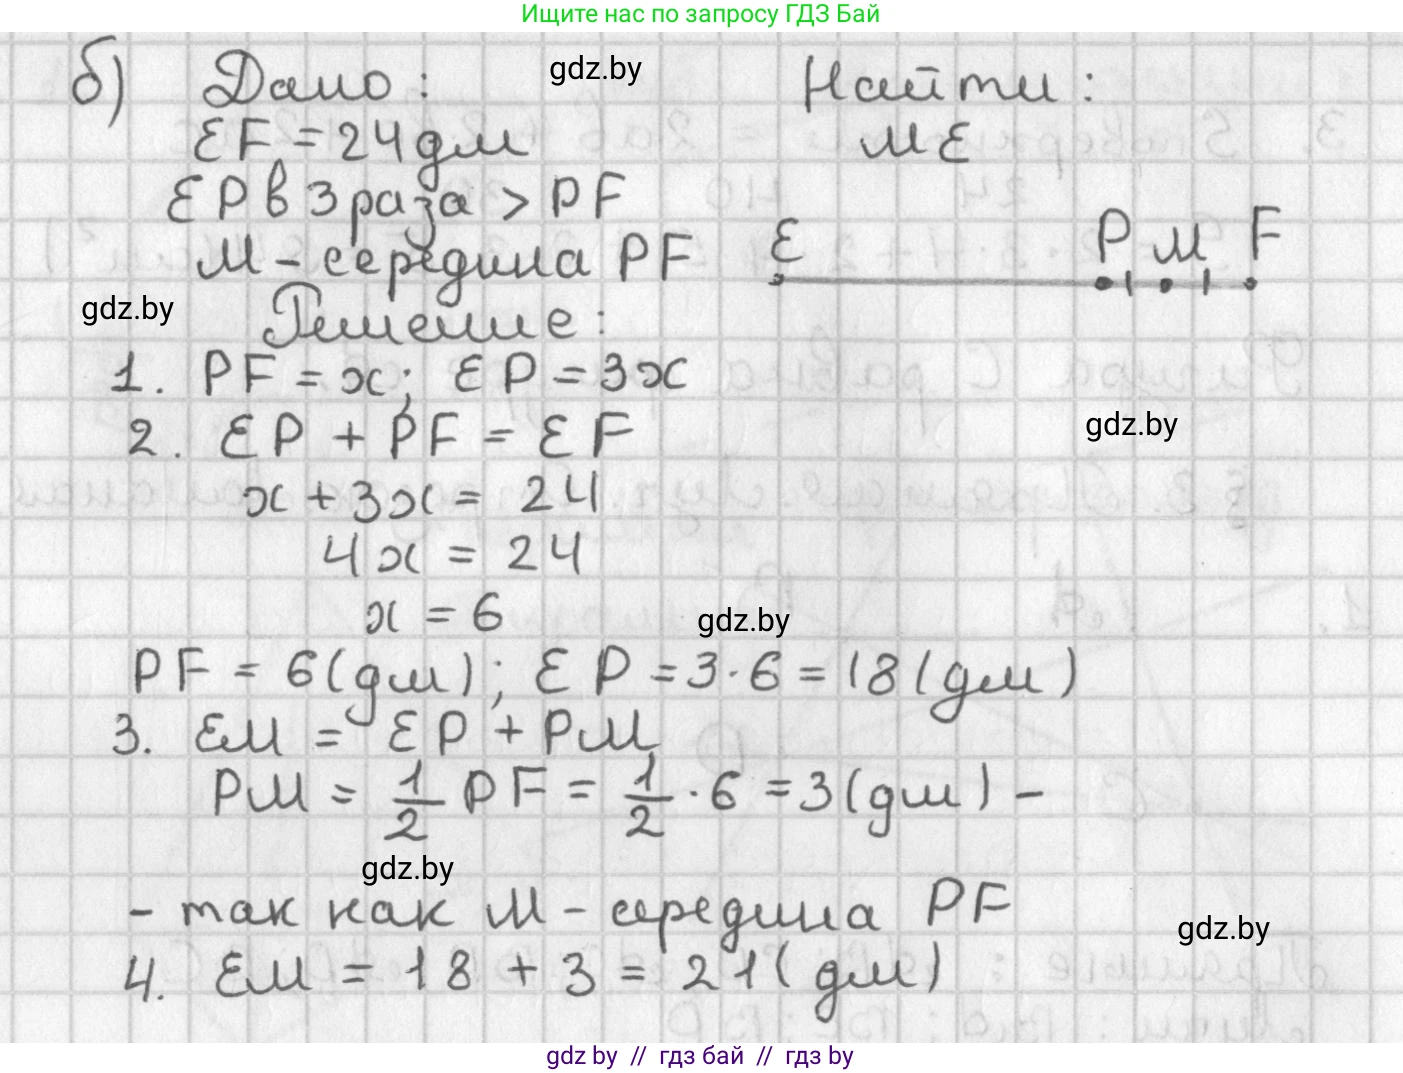 Ищите нас по запросу ГДЗ Бай
б) Дано: gdz.by Найти:
EF = 24 дм ME
EP в 3 раза > PF
M - середина PF E P M F
gdz.by Решение:
1. PF = x; EP = 3x
2. EP + PF = EF gdz.by
x + 3x = 24
4x = 24
x = 6 gdz.by
PF = 6 (дм); EP = 3 · 6 = 18 (дм)
3. EM = EP + PM
PM = 1/2 PF = 1/2 · 6 = 3 (дм) -
gdz.by
- так как M - середина PF
gdz.by
4. EM = 18 + 3 = 21 (дм)
gdz by // гдз бай // гдз by